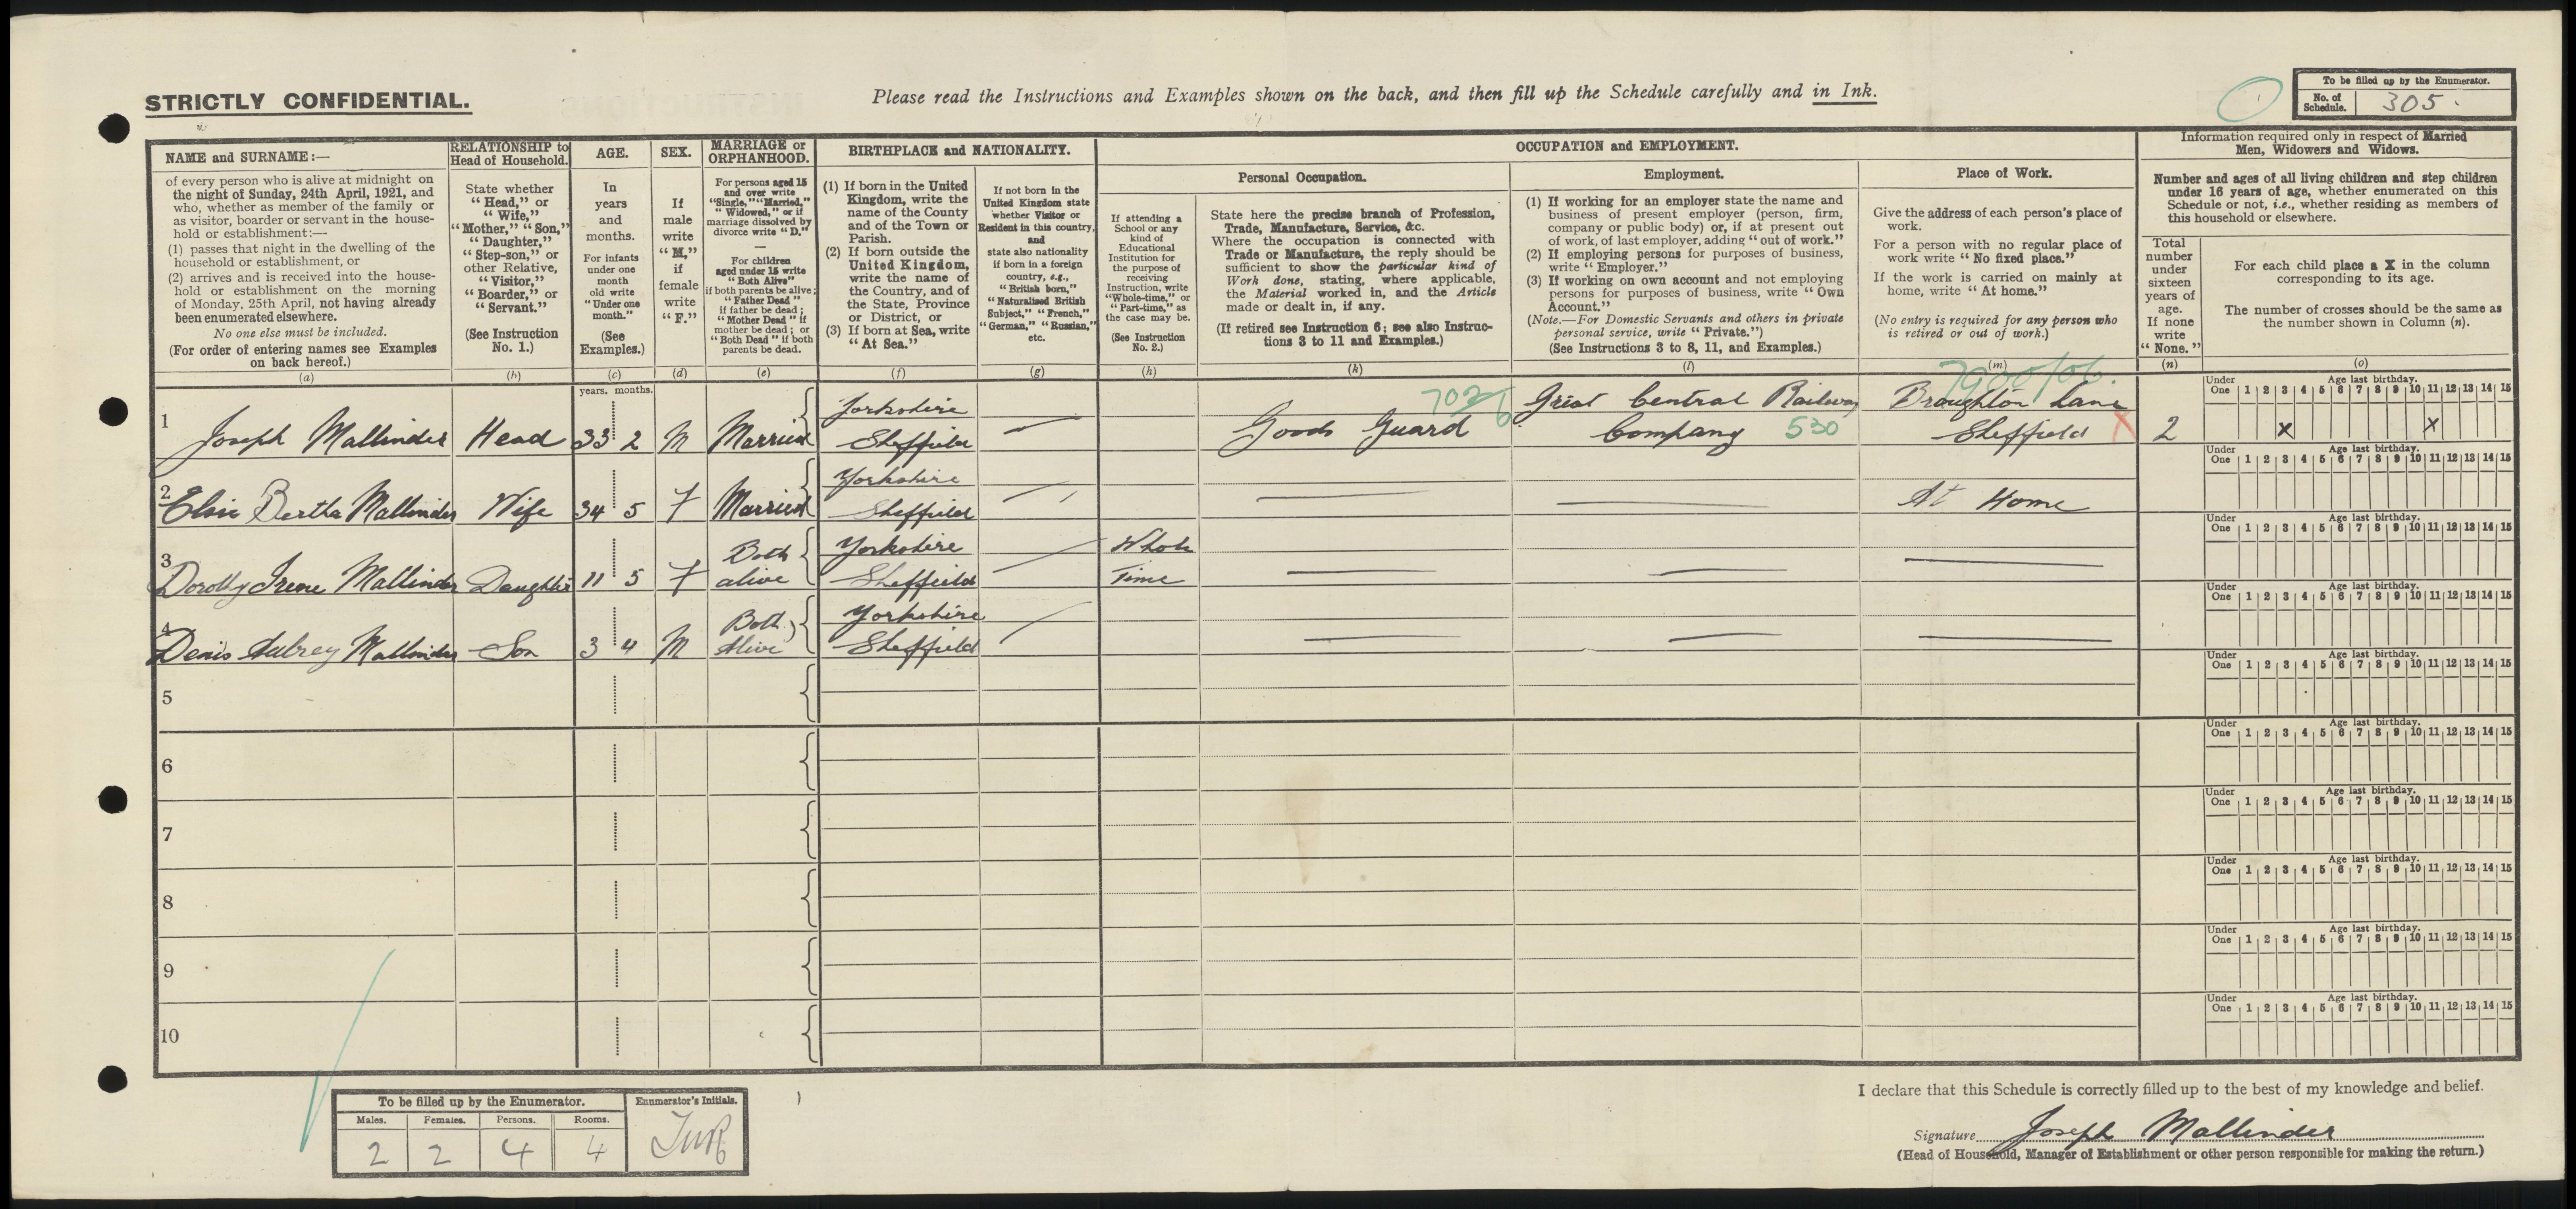 STRICTLY CONFIDENTIAL.
Please read the Instructions and Examples shown on the back, and then fill up the Schedule carefully and in Ink.
To be filled up by the Enumerator.
No. of Schedule. 305.
NAME and SURNAME:—
of every person who is alive at midnight on
the night of Sunday, 24th April, 1921, and
who, whether as member of the family or
as visitor, boarder or servant in the house-
hold or establishment:—
(1) passes that night in the dwelling of the
household or establishment, or
(2) arrives and is received into the house-
hold or establishment on the morning
of Monday, 25th April, not having already
been enumerated elsewhere.
No one else must be included.
(For order of entering names see Examples
on back hereof.)
(a)
RELATIONSHIP to
Head of Household.
State whether
"Head," or
"Wife,"
"Mother," "Son,"
"Daughter,"
"Step-son," or
other Relative,
"Visitor,"
"Boarder," or
"Servant."
(See Instruction
No. 1.)
(b)
AGE.
In
years
and
months.
For infants
under one
month
old write
"Under one
month."
(See
Examples.)
(c)
SEX.
If
male
write
"M,"
if
female
write
"F."
(d)
MARRIAGE or
ORPHANHOOD.
For persons aged 15
and over write
"Single," "Married,"
"Widowed," or if
marriage dissolved by
divorce write "D."
—
For children
aged under 15 write
"Both Alive"
if both parents be alive;
"Father Dead"
if father be dead;
"Mother Dead" if
mother be dead; or
"Both Dead" if both
parents be dead.
(e)
BIRTHPLACE and NATIONALITY.
(1) If born in the United
Kingdom, write the
name of the County
and of the Town or
Parish.
(2) If born outside the
United Kingdom,
write the name of
the Country, and of
the State, Province
or District, or
(3) If born at Sea, write
"At Sea."
(f)
If not born in the
United Kingdom state
whether Visitor or
Resident in this country,
and
state also nationality
if born in a foreign
country, e.g.,
"British born,"
"Naturalised British
Subject," "French,"
"German," "Russian,"
etc.
(g)
OCCUPATION and EMPLOYMENT.
If attending a
School or any
kind of
Educational
Institution for
the purpose of
receiving
Instruction, write
"Whole-time," or
"Part-time," as
the case may be.
(See Instruction
No. 2.)
(h)
Personal Occupation.
State here the precise branch of Profession,
Trade, Manufacture, Service, &c.
Where the occupation is connected with
Trade or Manufacture, the reply should be
sufficient to show the particular kind of
Work done, stating, where applicable,
the Material worked in, and the Article
made or dealt in, if any.
(If retired see Instruction 6; see also Instruc-
tions 3 to 11 and Examples.)
(k)
Employment.
(1) If working for an employer state the name and
business of present employer (person, firm,
company or public body) or, if at present out
of work, of last employer, adding "out of work."
(2) If employing persons for purposes of business,
write "Employer."
(3) If working on own account and not employing
persons for purposes of business, write "Own
Account."
(Note.—For Domestic Servants and others in private
personal service, write "Private.")
(See Instructions 3 to 8, 11, and Examples.)
(l)
Place of Work.
Give the address of each person's place of
work.
For a person with no regular place of
work write "No fixed place."
If the work is carried on mainly at
home, write "At home."
(No entry is required for any person who
is retired or out of work.)
(m)
Information required only in respect of Married
Men, Widowers and Widows.
Number and ages of all living children and step children
under 16 years of age, whether enumerated on this
Schedule or not, i.e., whether residing as members of
this household or elsewhere.
Total
number
under
sixteen
years of
age.
If none
write
"None."
(n)
For each child place a X in the column
corresponding to its age.
The number of crosses should be the same as
the number shown in Column (n).
(o)
years. months.
Under One Age last birthday. 1 2 3 4 5 6 7 8 9 10 11 12 13 14 15
1 Joseph Mallinder Head 33 2 M Married Yorkshire Sheffield — Goods Guard Great Central Railway Company 530 Broughton Lane Sheffield X 2 x x
Under One Age last birthday. 1 2 3 4 5 6 7 8 9 10 11 12 13 14 15
2 Elsie Bertha Mallinder Wife 34 5 F Married Yorkshire Sheffield — — — At Home
Under One Age last birthday. 1 2 3 4 5 6 7 8 9 10 11 12 13 14 15
3 Dorothy Irene Mallinder Daughter 11 5 F Both alive Yorkshire Sheffield — Whole Time — — —
Under One Age last birthday. 1 2 3 4 5 6 7 8 9 10 11 12 13 14 15
4 Denis Aubrey Mallinder Son 3 4 M Both Alive Yorkshire Sheffield — — — —
Under One Age last birthday. 1 2 3 4 5 6 7 8 9 10 11 12 13 14 15
5
Under One Age last birthday. 1 2 3 4 5 6 7 8 9 10 11 12 13 14 15
6
Under One Age last birthday. 1 2 3 4 5 6 7 8 9 10 11 12 13 14 15
7
Under One Age last birthday. 1 2 3 4 5 6 7 8 9 10 11 12 13 14 15
8
Under One Age last birthday. 1 2 3 4 5 6 7 8 9 10 11 12 13 14 15
9
Under One Age last birthday. 1 2 3 4 5 6 7 8 9 10 11 12 13 14 15
10
To be filled up by the Enumerator.
Males. Females. Persons. Rooms.
2 2 4 4
Enumerator's Initials.
I declare that this Schedule is correctly filled up to the best of my knowledge and belief.
Signature Joseph Mallinder
(Head of Household, Manager of Establishment or other person responsible for making the return.)